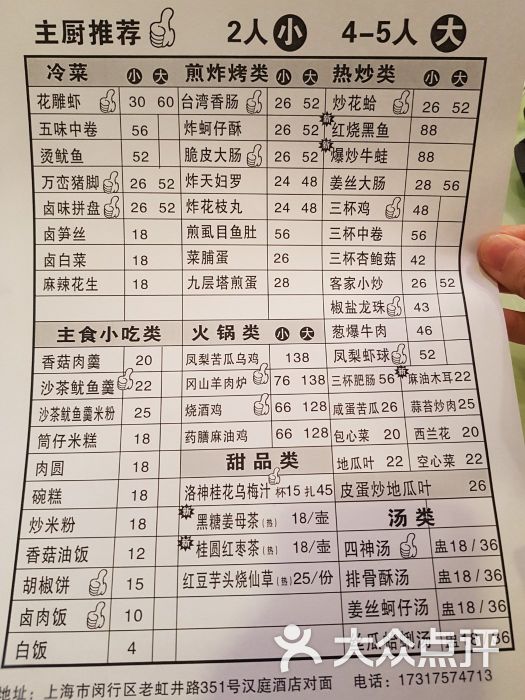 主厨推荐 2人 小 4-5人 大
冷菜 小 大
花雕虾 30 60
五味中卷 56
烫鱿鱼 52
万峦猪脚 26 52
卤味拼盘 26 52
卤笋丝 18
卤白菜 18
麻辣花生 18
煎炸烤类 小 大
台湾香肠 26 52
炸蚵仔酥 26 52
脆皮大肠 26 52
炸天妇罗 24 48
炸花枝丸 24 48
煎虱目鱼肚 56
菜脯蛋 28
九层塔煎蛋 28
热炒类 小 大
炒花蛤 26 52
红烧黑鱼 88
爆炒牛蛙 88
姜丝大肠 28 56
三杯鸡 48
三杯中卷 56
三杯杏鲍菇 42
客家小炒 26 52
椒盐龙珠 43
葱爆牛肉 46
凤梨虾球 52
三杯肥肠 56 麻油木耳 22
咸蛋苦瓜 26 蒜苔炒肉 25
包心菜 20 西兰花 20
地瓜叶 22 空心菜 22
皮蛋炒地瓜叶 26
主食小吃类
香菇肉羹 20
沙茶鱿鱼羹 22
沙茶鱿鱼羹米粉 25
筒仔米糕 18
肉圆 18
碗糕 18
炒米粉 18
香菇油饭 12
胡椒饼 15
卤肉饭 10
白饭 4
火锅类 小 大
凤梨苦瓜乌鸡 138
冈山羊肉炉 76 138
烧酒鸡 66 128
药膳麻油鸡 66 128
甜品类
洛神桂花乌梅汁 杯15 扎45
黑糖姜母茶(热) 18/壶
桂圆红枣茶(热) 18/壶
红豆芋头烧仙草(热) 25/份
汤类
四神汤 盅18/36
排骨酥汤 盅18/36
姜丝蚵仔汤 盅18/36
瓜蛤蜊汤 盅18/36
地址：上海市闵行区老虹井路351号汉庭酒店对面 电话：17317574713
大众点评